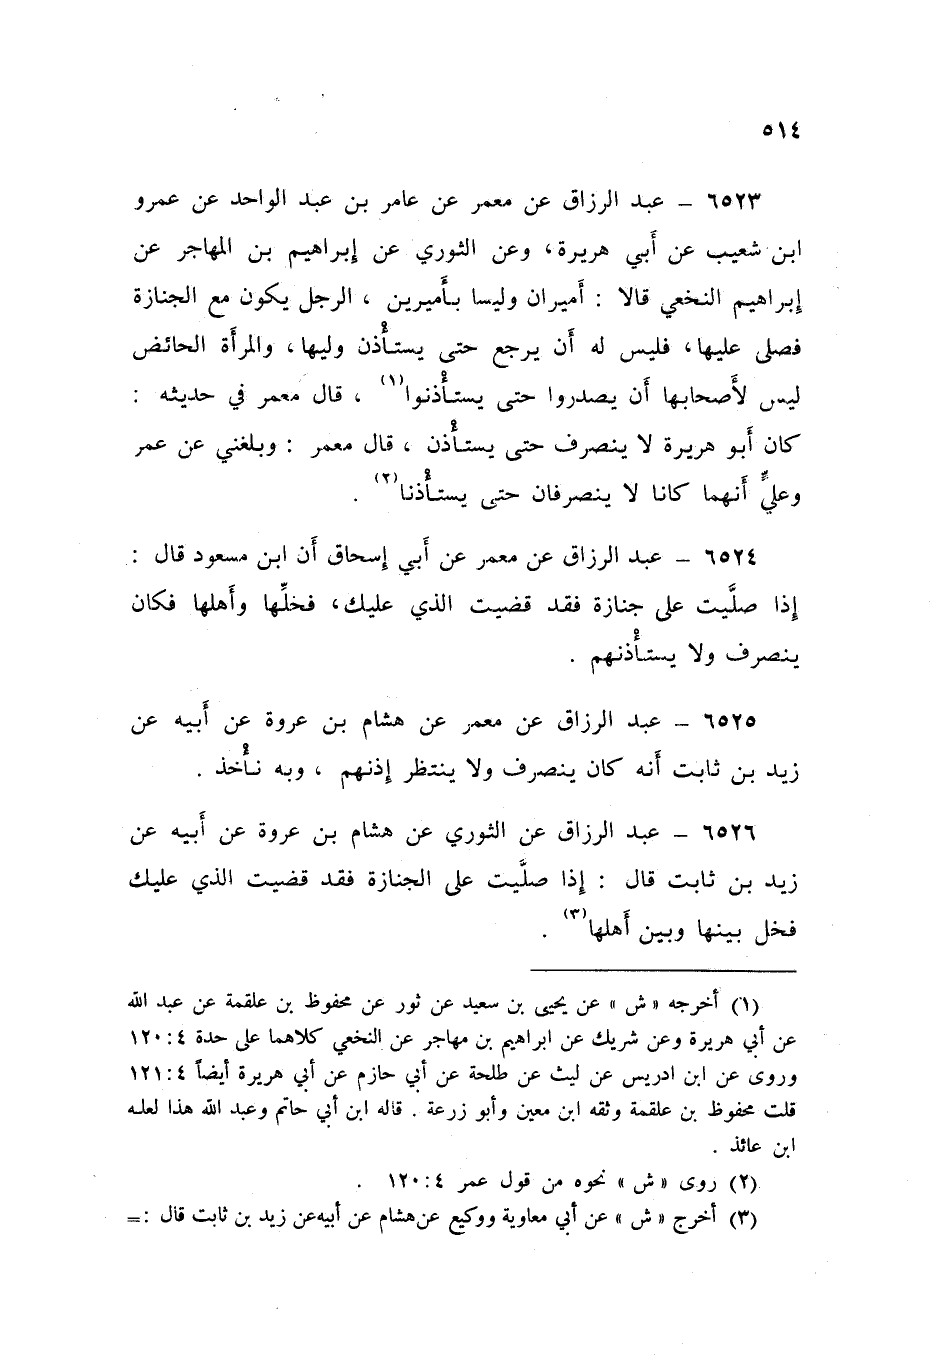 ٥١٤
٦٥٢٣ – عبد الرزاق عن معمر عن عامر بن عبد الواحد عن عمرو
ابن شعيب عن أَبي هريرة، وعن الثوري عن إبراهيم بن المهاجر عن
إبراهيم النخعي قالا : أَميران وليسا بأَميرين ، الرجل يكون مع الجنازة
فصلى عليها، فليس له أن يرجع حتى يستأْذن وليها، والمرأَة الحائض
ليس لأَصحابها أَن يصدروا حتى يستأْذنوا(١) ، قال معمر في حديثه :
كان أَبو هريرة لا ينصرف حتى يستأْذن ، قال معمر : وبلغني عن عمر
وعليٍّ أَنهما كانا لا ينصرفان حتى يستأْذنا(٢) .
٦٥٢٤ – عبد الرزاق عن معمر عن أَبي إسحاق أَن ابن مسعود قال :
إذا صلَّيت على جنازة فقد قضيت الذي عليك، فخلِّها وأَهلها فكان
ينصرف ولا يستأْذنهم .
٦٥٢٥ – عبد الرزاق عن معمر عن هشام بن عروة عن أَبيه عن
زيد بن ثابت أَنه كان ينصرف ولا ينتظر إذنهم ، وبه نأْخذ .
٦٥٢٦ – عبد الرزاق عن الثوري عن هشام بن عروة عن أَبيه عن
زيد بن ثابت قال : إذا صلَّيت على الجنازة فقد قضيت الذي عليك
فخل بينها وبين أَهلها(٣) .
(١) أخرجه « ش » عن يحيى بن سعيد عن ثور عن محفوظ بن علقمة عن عبد الله
عن أبي هريرة وعن شريك عن ابراهيم بن مهاجر عن النخعي كلاهما على حدة ٤ :١٢٠
وروى عن ابن ادريس عن ليث عن طلحة عن أبي حازم عن أبي هريرة أيضاً ٤ :١٢١
قلت محفوظ بن علقمة وثقه ابن معين وأبو زرعة . قاله ابن أبي حاتم وعبد الله هذا لعله
ابن عائذ .
(٢) روى « ش » نحوه من قول عمر ٤ :١٢٠ .
(٣) أخرج « ش » عن أبي معاوية ووكيع عن هشام عن أبيه عن زيد بن ثابت قال :=